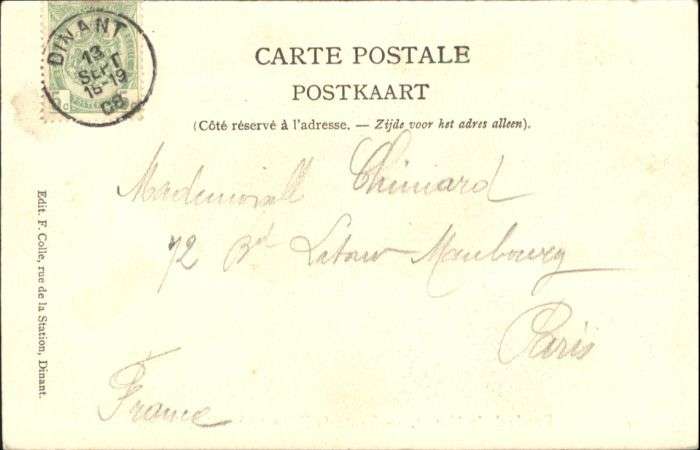 DINANT
13
SEPT
15-19
08
5 c
CARTE POSTALE
POSTKAART
(Côté réservé à l'adresse. — Zijde voor het adres alleen).
Mademoiselle
72 Bd Latour Maubourg
Paris
France
Edit. F. Colle, rue de la Station, Dinant.